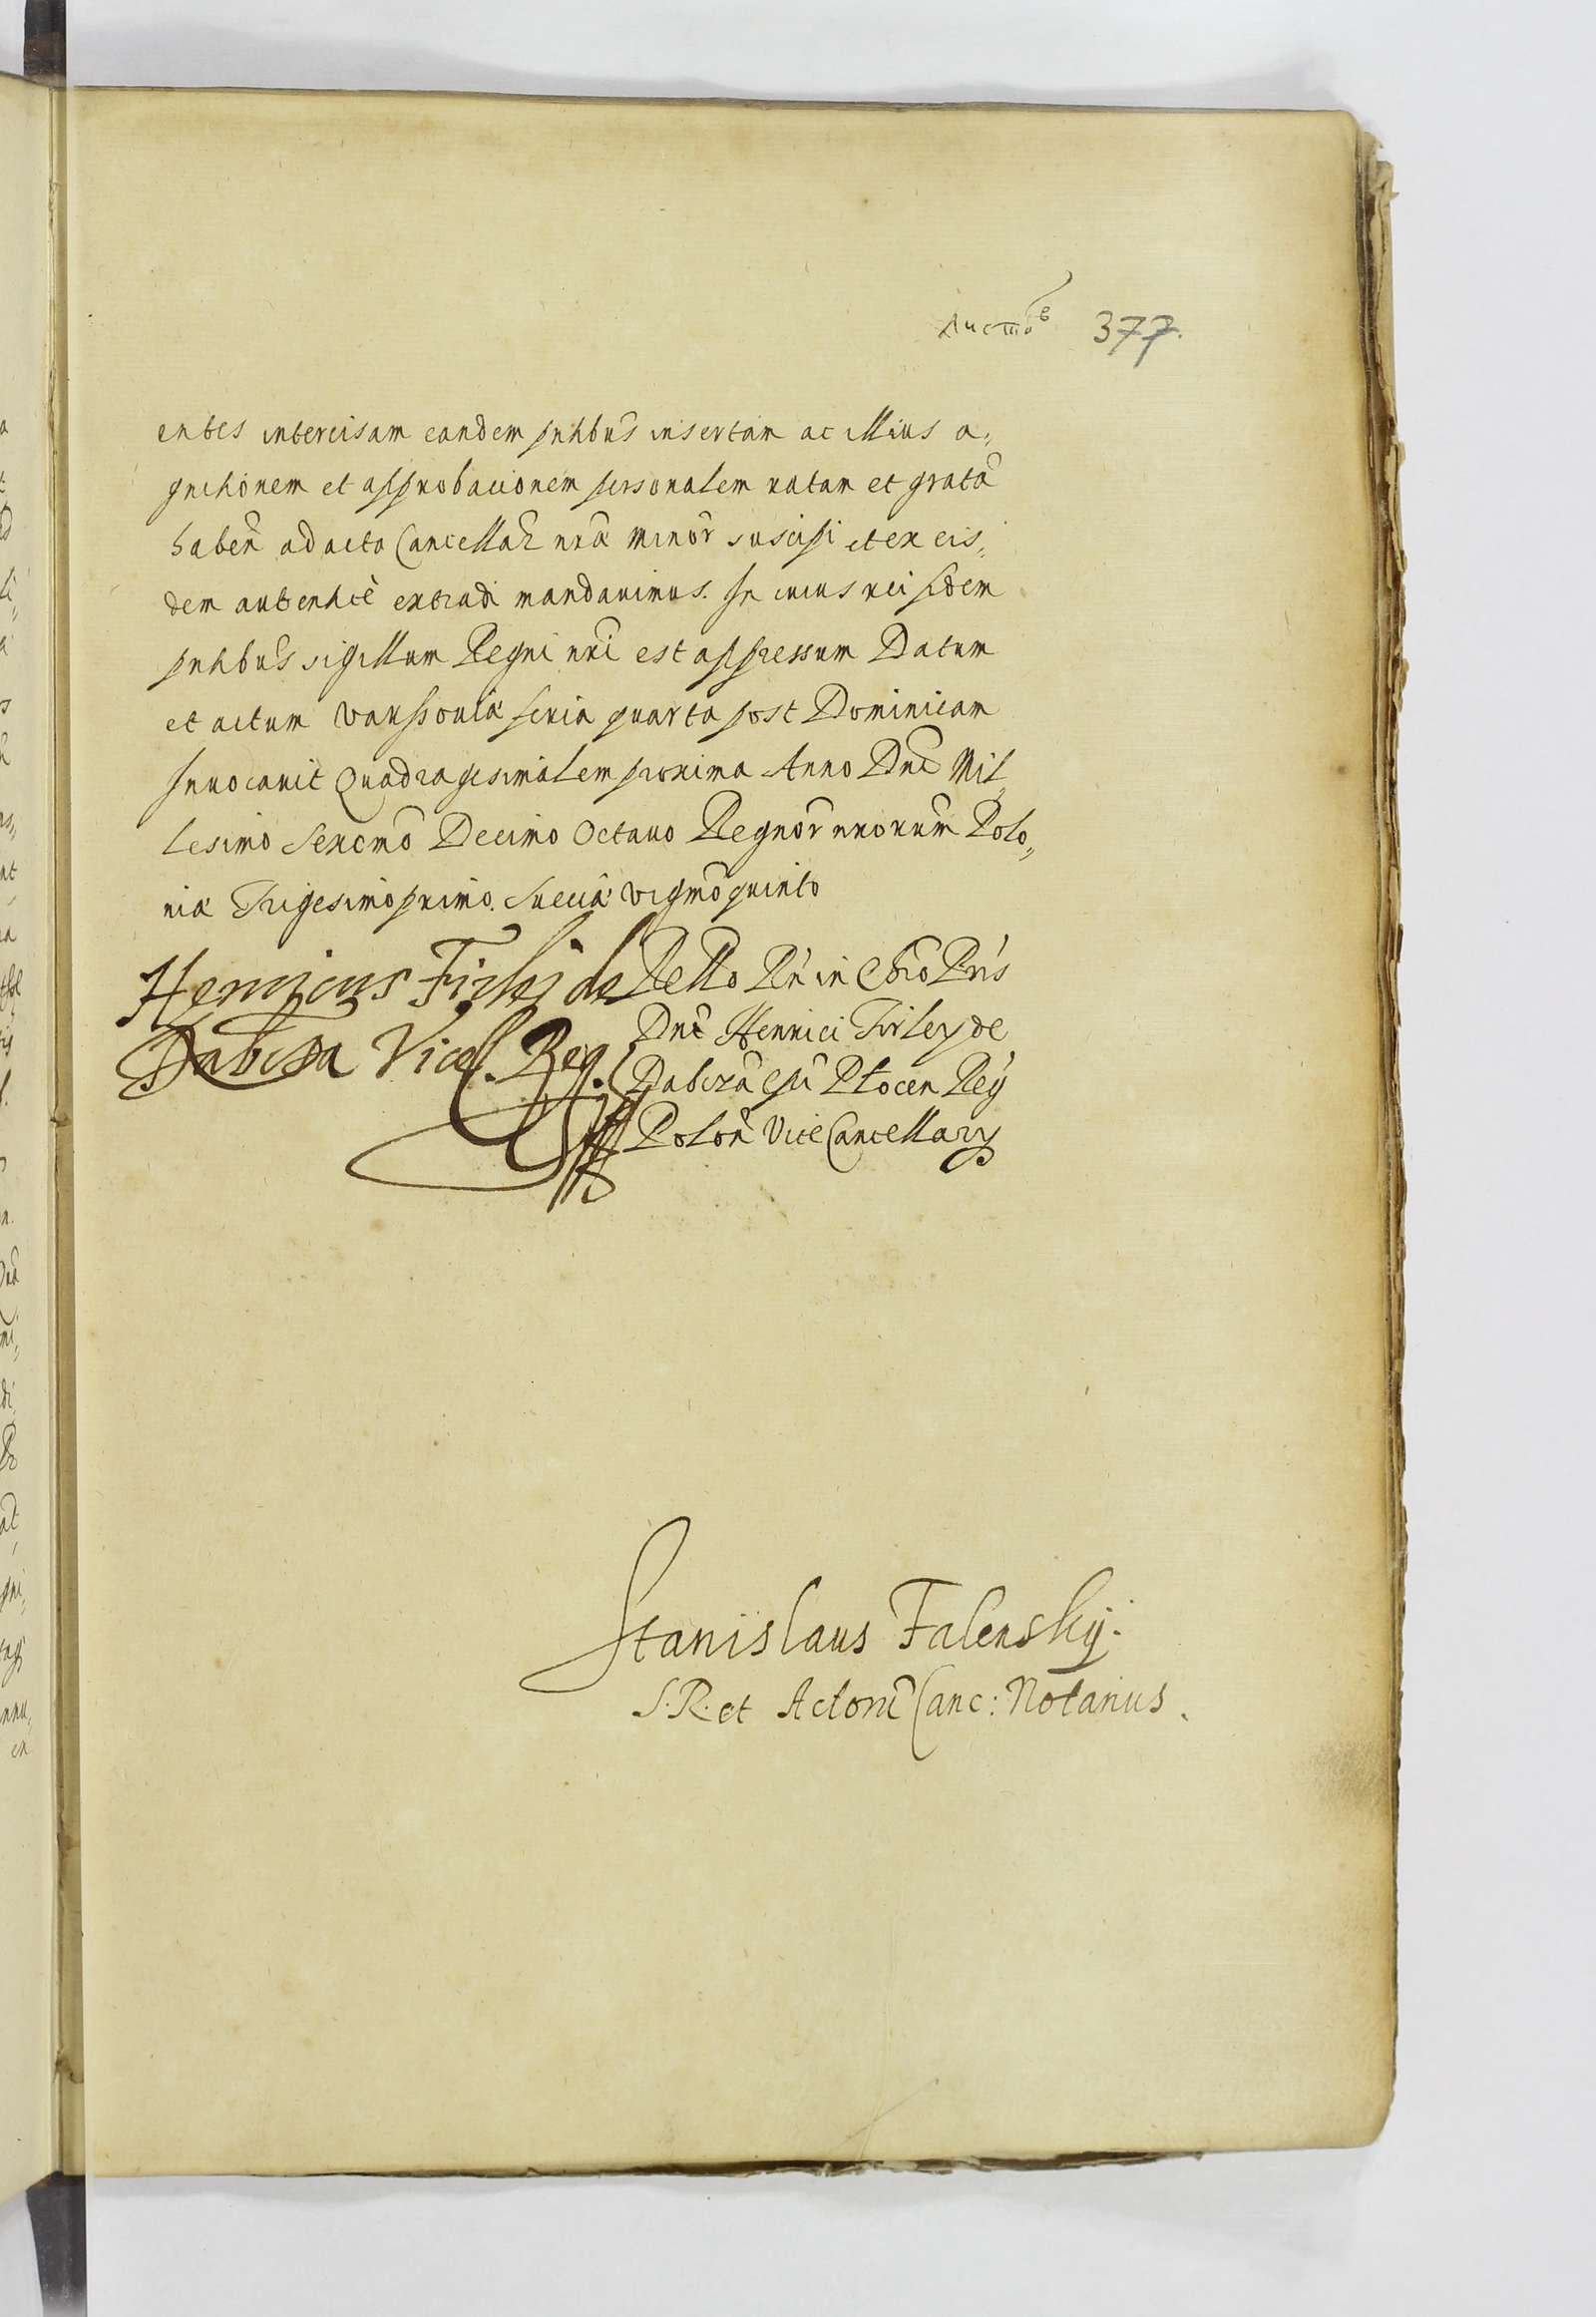 листовъ 377.
entes intercisam eandem pntibus insertam ac illius a„
gnitionem et approbationem personalem ratam et gratã
haben̄ ad acta Cancellar̃ nr̃æ minor̃ suscipi et ex eis„
dem autenticè extradi mandauimus. In cuius rei fidem
pntibus sigillum Regni nr̃i est appressum Datum
et actum Varssouiæ feria quarta post Dominicam
Inuocauit Quadragesimalem proxima Anno Dnĩ Mil„
lesimo Sexcmõ Decimo Octauo Regnor̃ nr̃orum Polo„
niæ Trigesimoprimo. Sueciæ vigmõquinto
Henricus Firlej de
Dabrowica Vicec. Reg.
Rello Rn in Chro Pris
Dni Henrici Firley de
Dabrowica Epi Plocen Regni
Polon̄ ViceCancellarij
Stanislaus Falensky.
S. R. et Actorũ Canc: Notarius.